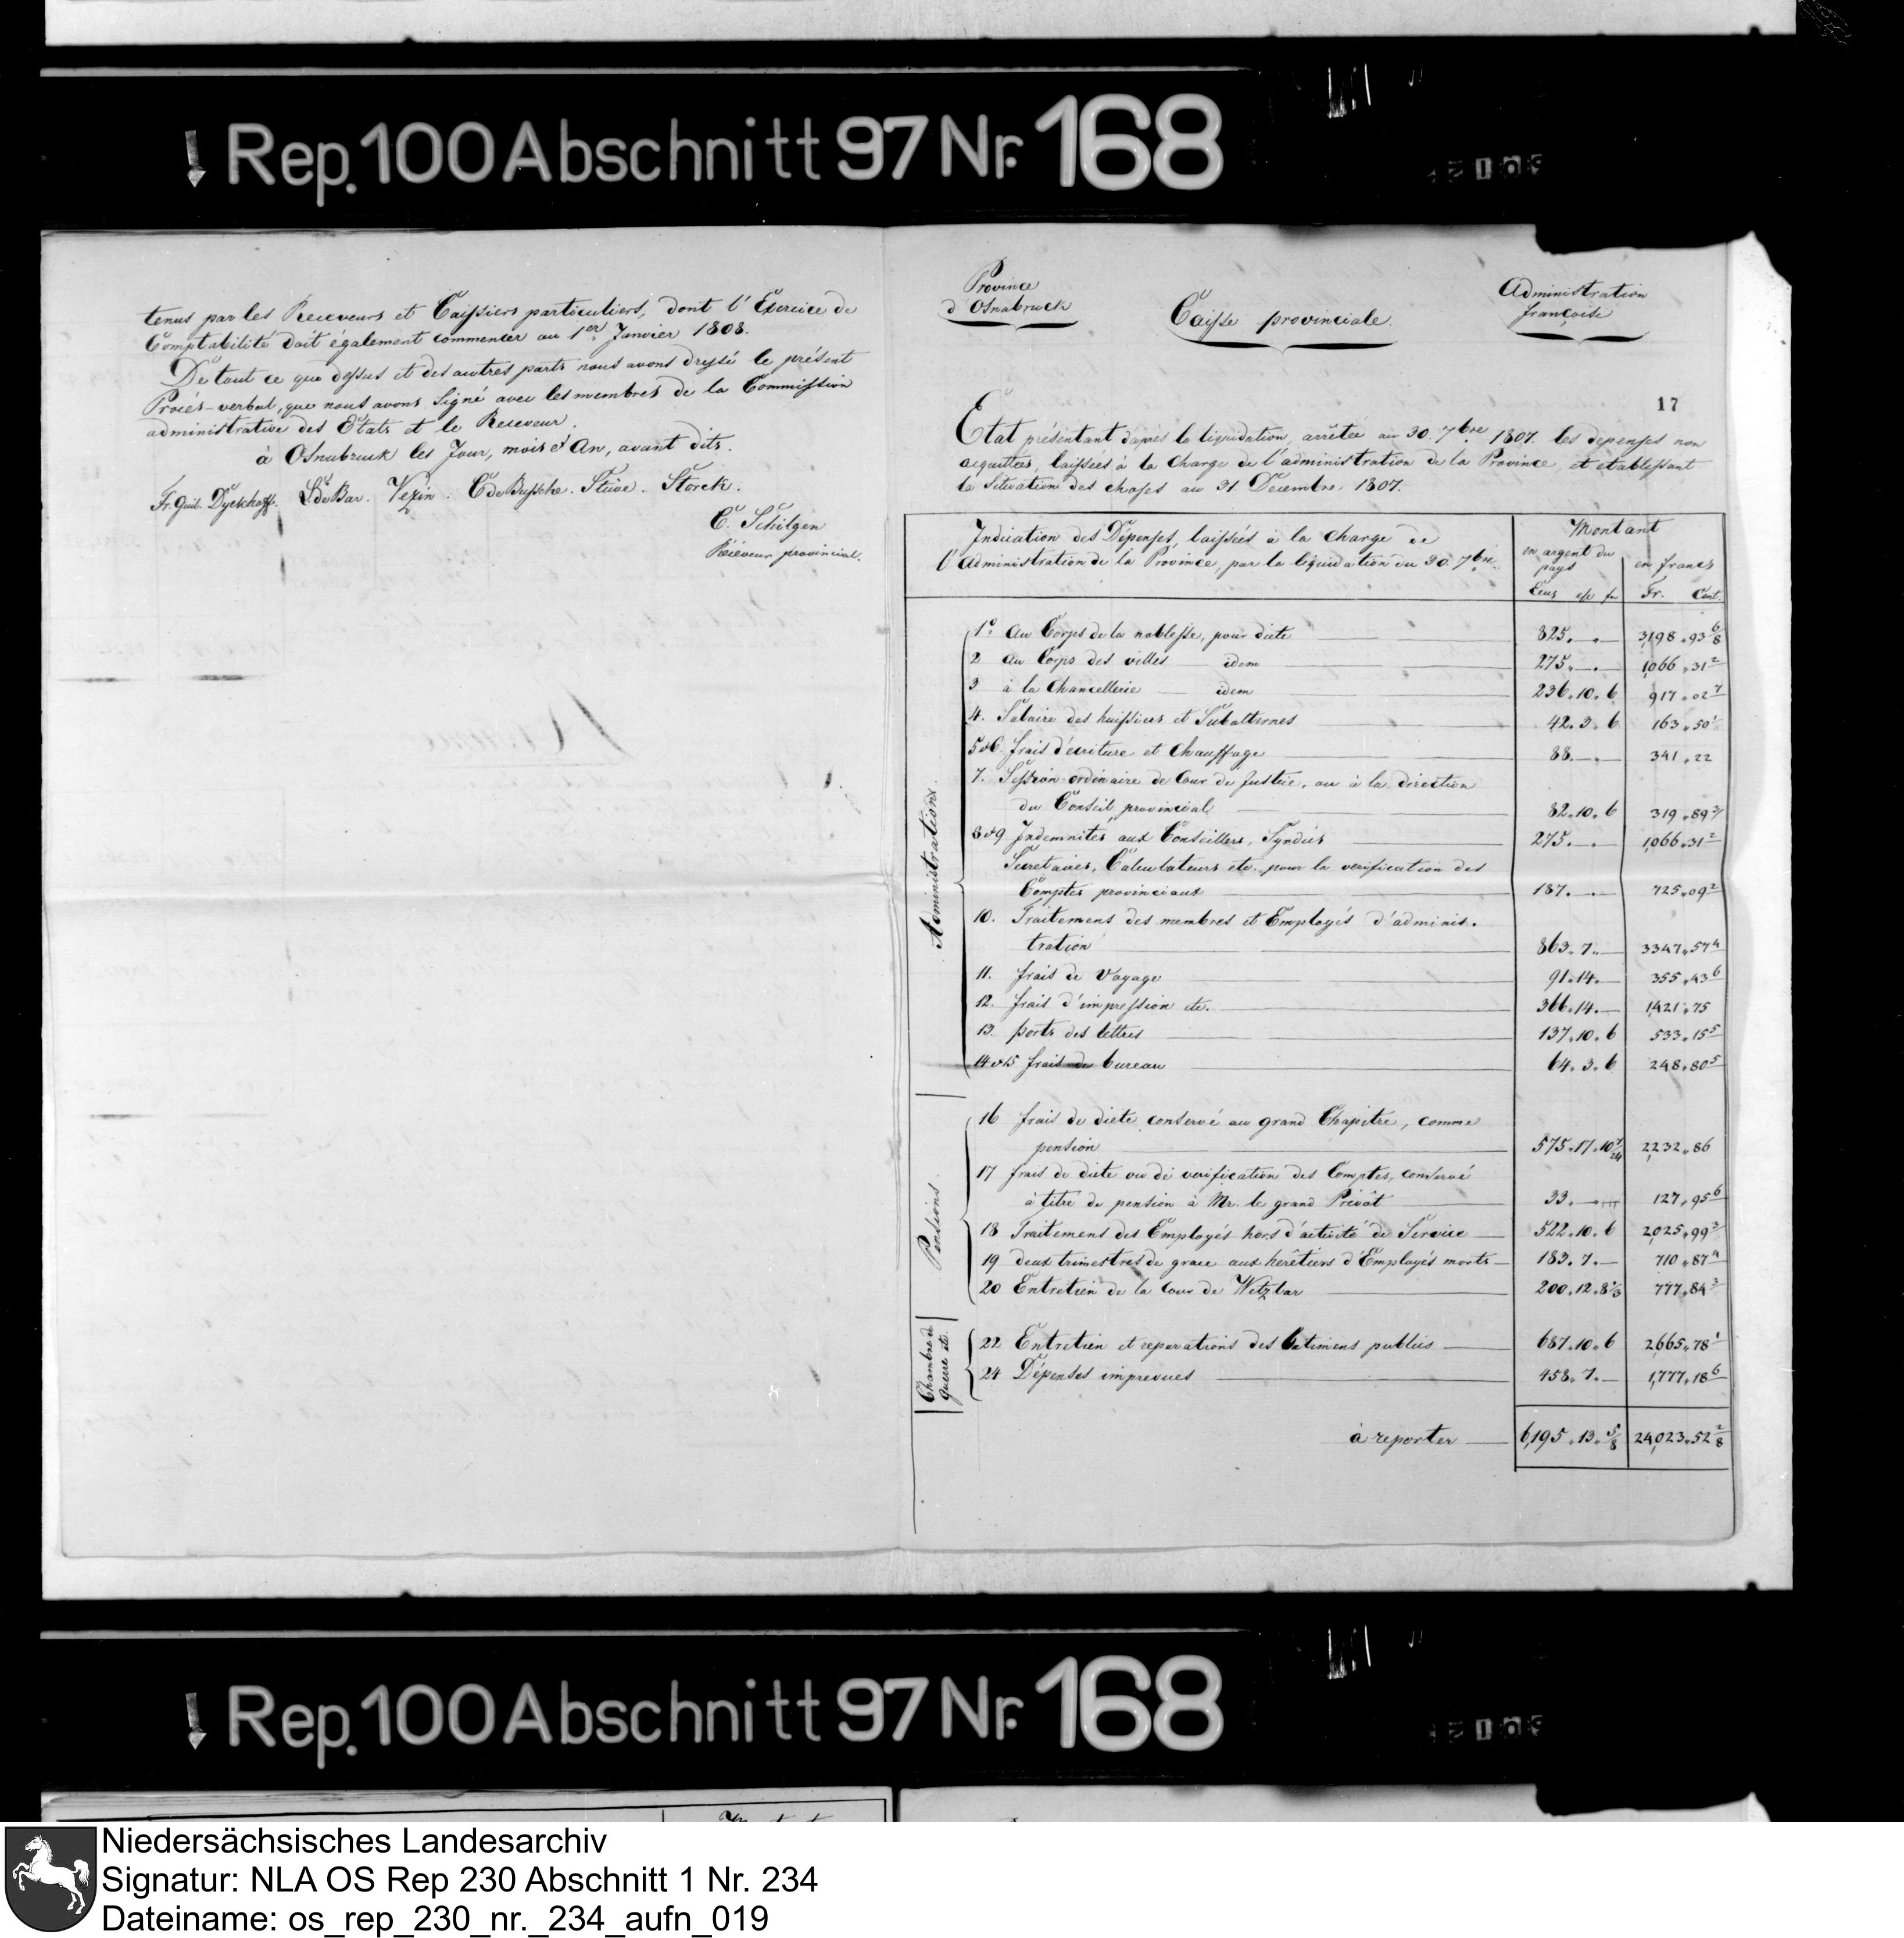 Rep. 100 Abschnitt 97 Nr. 168
tenus par les Receveurs et Caissiers particuliers, dont l'Exercice de
Comptabilité doit également commencer au 1er Janvier 1808.
De tout ce que dessus et des autres parts nous avons dressé le présent
Procès-verbal, que nous avons Signé avec les membres de la Commission
administrative des Etats et le Receveur.
à Osnabruck les Jour, mois et An, avant dits.
Fr. Guil. Dyckhoff. de Bar. Vezin. C de Bussche. Stüve. Storck.
C. Schilgen
Receveur provincial.
Province
d'Osnabruck
Caisse provinciale.
Administration
françoise
17
Etat présentant d'après la liquidation, arrêtée au 30. 7bre 1807. les dépenses non
acquittées, laissées à la charge de l'administration de la Province, et etablissant
la Situation des choses au 31. Decembre. 1807.
Indication des Dépenses, laissées à la charge de
l'Administration de la Province, par la liquidation du 30. 7bre.
Montant
en argent du
pays
en francs
Ecus
Fr. Cent.
Administration.
1° Au Corps de la noblesse, pour diete 825. 3198.93 6/8
2 Au Corps des villes idem 275. 1066.31 2
3 à la Chancellerie idem 236.10.6 917.02 7
4. Salaire des huissiers et Subalternes 42.3.6 163.50 1
5 & 6. frais d'écriture et Chauffage 88. 341.22
7. Session ordinaire de Cour de Justice, ou à la direction
du Conseil provincial 82.10.6 319.89 3
8 & 9 Indemnités aux Conseillers, Syndics 275. 1066.31 2
Secretaires, Calculateurs etc. pour la verification des
Comptes provinciaux 187. 725.09 2
10. Traitemens des membres et Employés d'adminis-
tration 863.7. 3347.57 4
11. frais de Voyage 91.14. 355.43 6
12. frais d'impression etc. 366.14. 1421.75
13. ports des lettres 137.10.6 533.15 5
14 & 15 frais de bureau 64.3.6 248.80 5
Pensions.
16 frais de diete conservé au grand Chapitre, comme
pension 575.17.10 2232.86
17 frais de diete ou de verification des Comptes, conservé
à titre de pension à Mr. le grand Prévôt 33. 127.95 6
18 Traitement des Employés hors d'activité de Service 522.10.6 2025.99 3
19 deux trimestres de grace aux héritiers d'Employés morts 183.7. 710.87 4
20 Entretien de la Cour de Wetzlar 200.12.8 1/3 777.84 3
Chambre de
guerre etc.
22 Entretien et reparations des batimens publics 687.10.6 2665.78 1
24 Dépenses imprevues 458.7. 1777.18 6
à reporter 6195.13. 5/8 24,023.52 2/8
Rep. 100 Abschnitt 97 Nr. 168
Niedersächsisches Landesarchiv
Signatur: NLA OS Rep 230 Abschnitt 1 Nr. 234
Dateiname: os_rep_230_nr._234_aufn_019